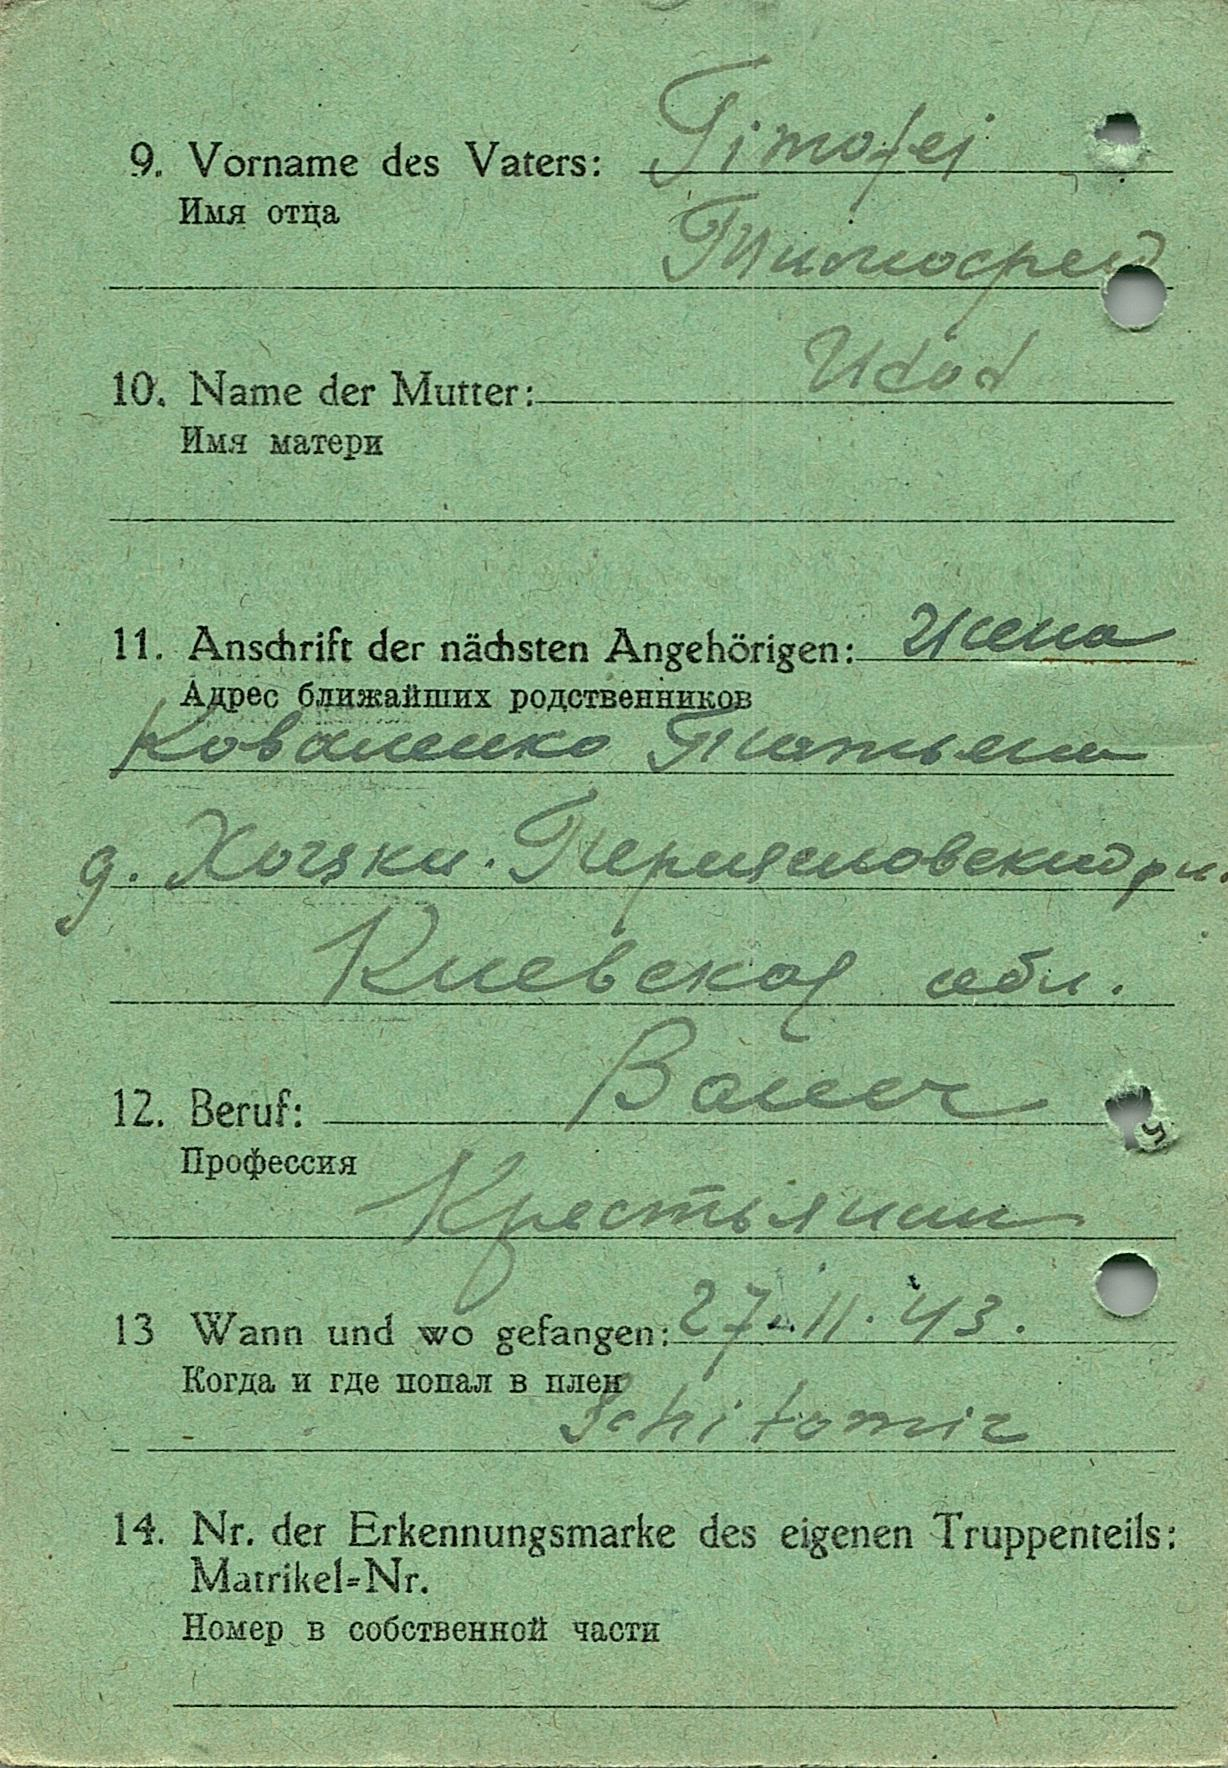 9. Vorname des Vaters: Timofej
Имя отца
Тимофей
10. Name der Mutter: Udod
Имя матери
11. Anschrift der nächsten Angehörigen: Жена
Адрес ближайших родственников
Коваленко Татьяна
д. Хоцки. Переясловский р н.
Киевская обл.
12. Beruf: Bauer
Профессия
Крестьянин
13 Wann und wo gefangen: 27.11.43.
Когда и где попал в плен
Schitomir
14. Nr. der Erkennungsmarke des eigenen Truppenteils:
Matrikel=Nr.
Номер в собственной части